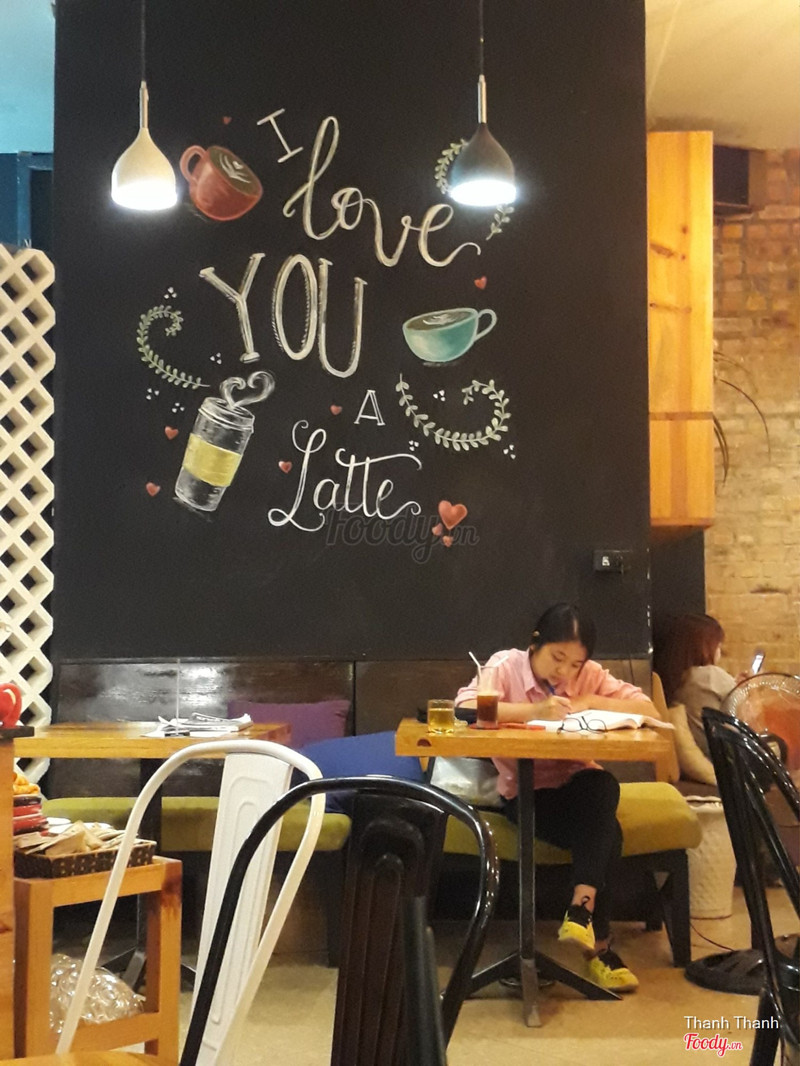 I
love
YOU
A
Latte
Foody.vn
Thanh Thanh
Foody.vn